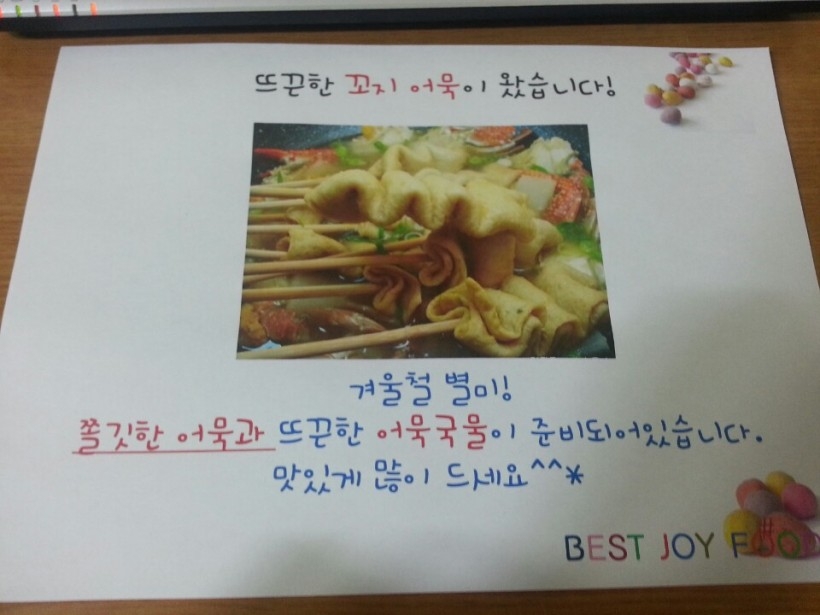 뜨끈한 꼬지 어묵이 왔습니다!
겨울철 별미!
쫄깃한 어묵과 뜨끈한 어묵국물이 준비되어있습니다.
맛있게 많이 드세요^^*
BEST JOY FOOD